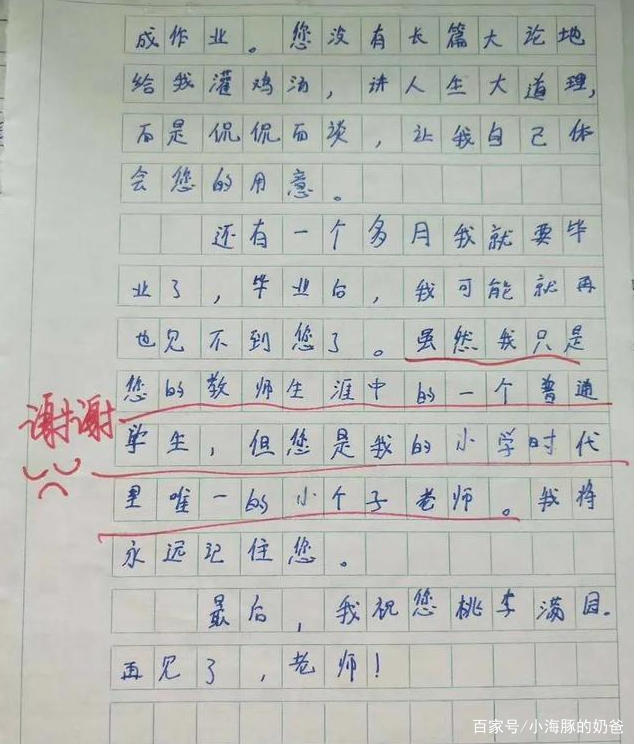 成作业。您没有长篇大论地
给我灌鸡汤，讲人生大道理，
而是侃侃而谈，让我自己体
会您的用意。
还有一个多月我就要毕
业了，毕业后，我可能就再
也见不到您了。虽然我只是
您的教师生涯中的一个普通
谢谢
学生，但您是我的小学时代
里唯一的小个子老师。我将
永远记住您。
最后，我祝您桃李满园.
再见了，老师！
百家号/小海豚的奶爸